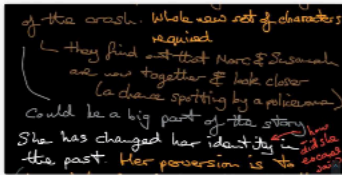 of the crash. Whole new set of characters
required
↳ they find out that Marc & Susannah
are now together & look closer
(a chance spotting by a policeman)
Could be a big part of the story
She has changed her identity in
the past. Her perversion is to
how
did she
escape
jail?